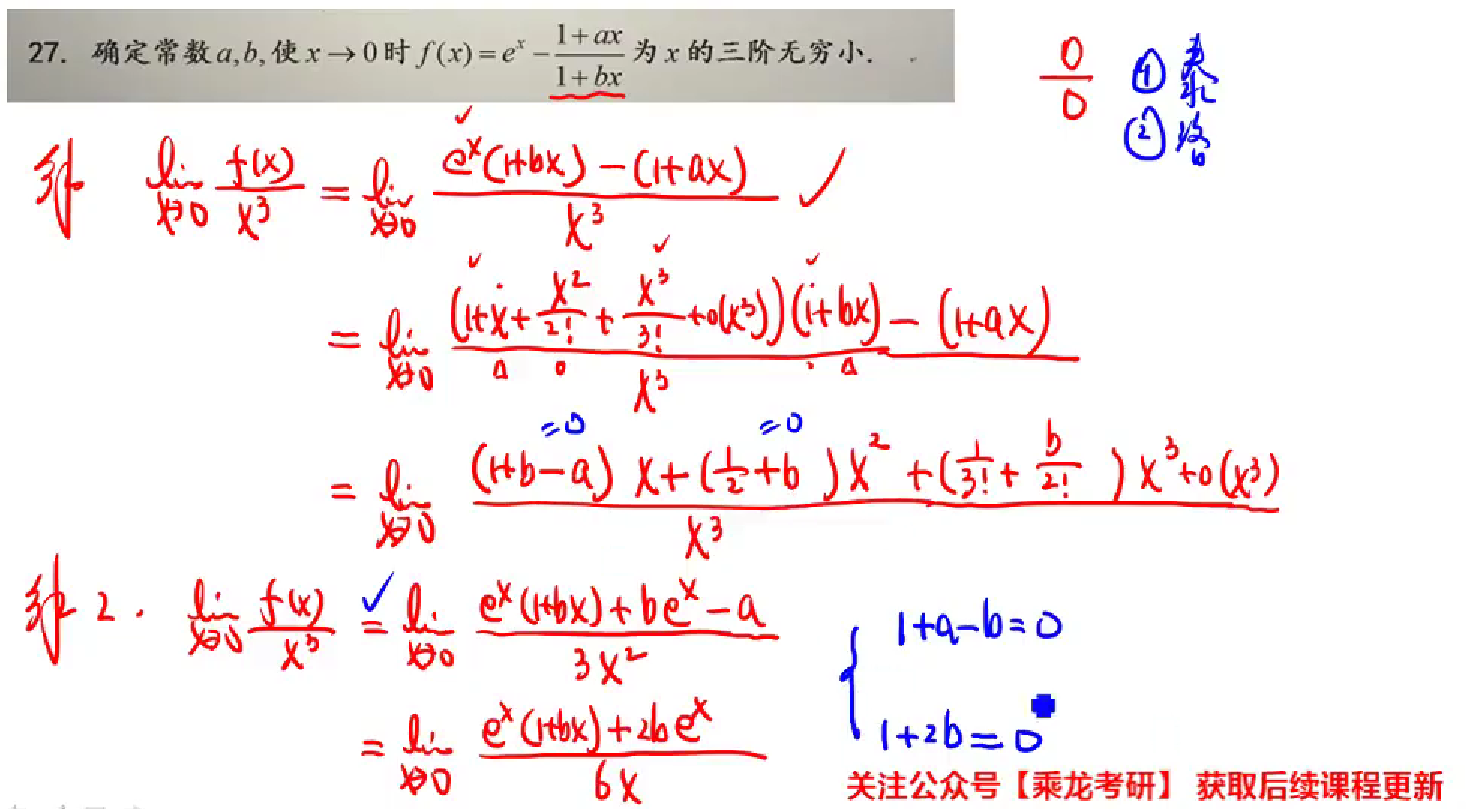 27. 确定常数 a,b, 使 x→0 时 f(x)=e^x − (1+ax)/(1+bx) 为 x 的三阶无穷小.
0/0 ① 泰
② 洛
lim_{x→0} f(x)/x^3 = lim_{x→0} (e^x(1+bx)−(1+ax))/x^3 ✓
= lim_{x→0} ((1+x+x^2/2!+x^3/3!+o(x^3))(1+bx)−(1+ax))/x^3
=0 =0
= lim_{x→0} ((1+b−a)x+(1/2+b)x^2+(1/3!+b/2!)x^3+o(x^3))/x^3
2. lim_{x→0} f(x)/x^3 = lim_{x→0} (e^x(1+bx)+be^x−a)/3x^2
{ 1+a−b=0
= lim_{x→0} (e^x(1+bx)+2be^x)/6x
1+2b=0
关注公众号【乘龙考研】 获取后续课程更新